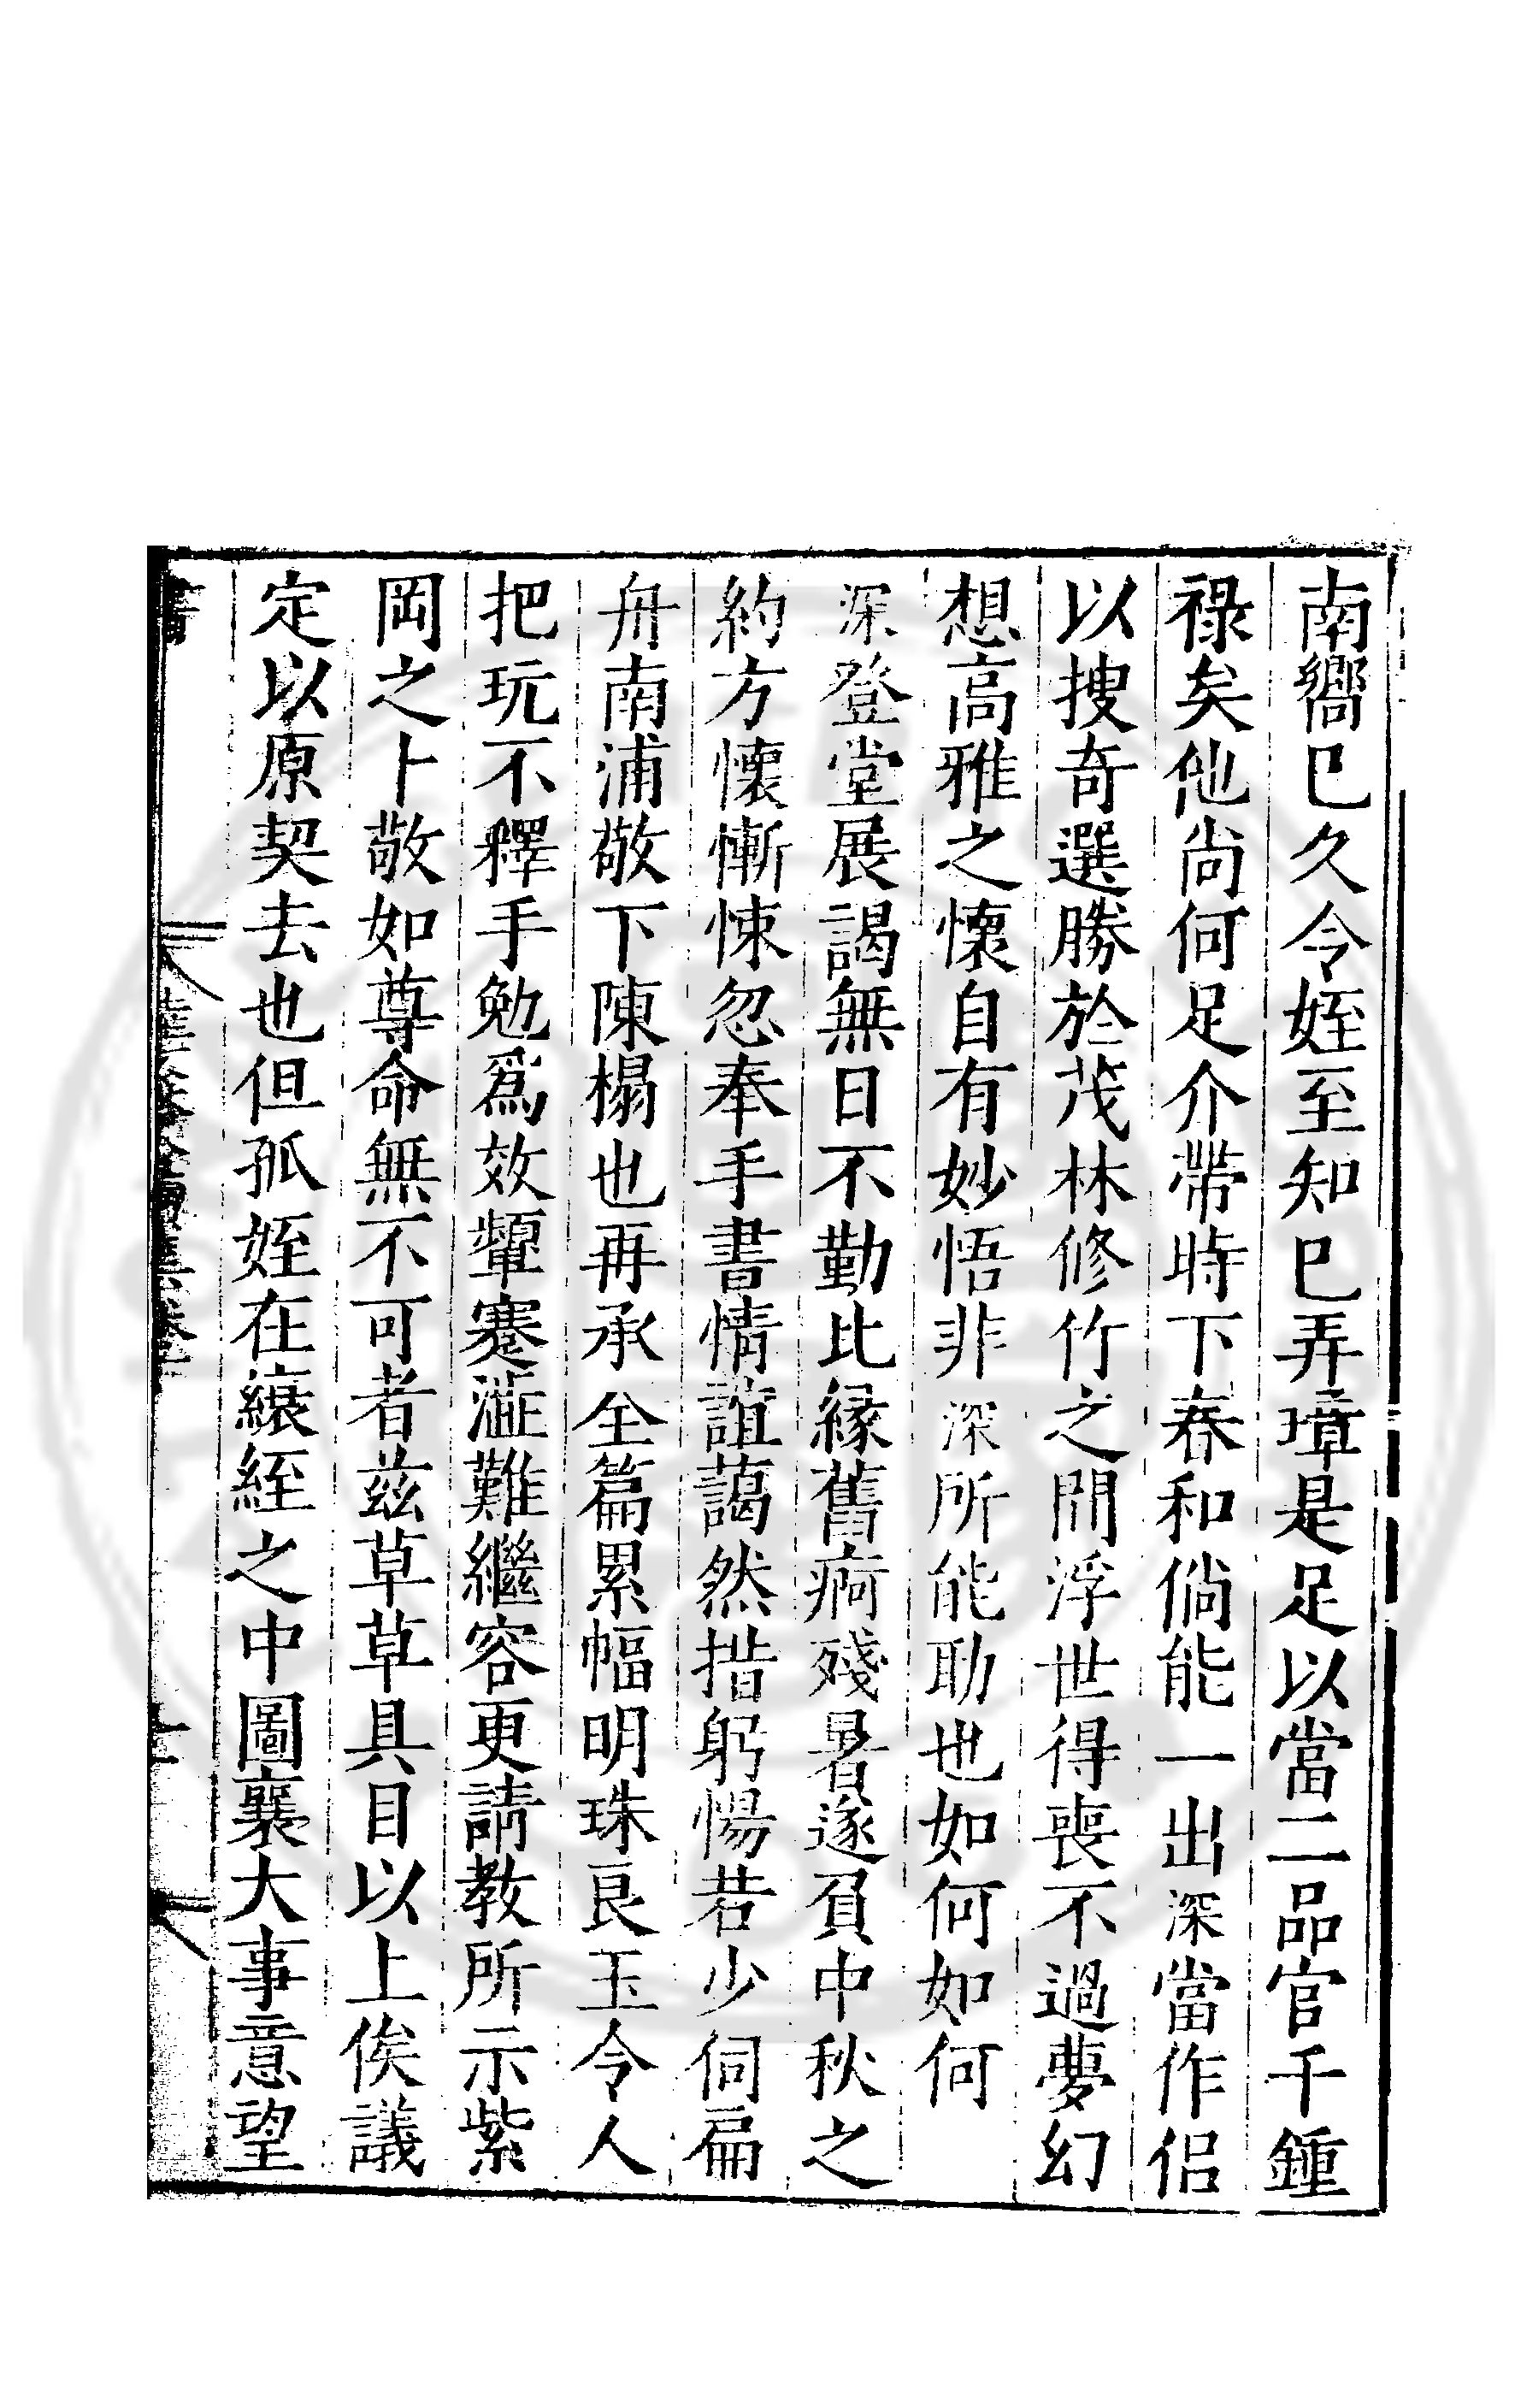 南嚮已久令姪至知已弄璋是足以當二品官千鍾
祿矣他尚何足介帶時下春和倘能一出深當作侶
以搜奇選勝於茂林修竹之間浮世得喪不過夢幻
想高雅之懷自有妙悟非深所能助也如何如何
深登堂展謁無日不勤比緣舊痾殘暑遂負中秋之
約方懷慚悚忽奉手書情誼藹然揩躬惕若少伺扁
舟南浦敬下陳榻也再承全篇累幅明珠良玉令人
把玩不釋手勉爲效顰蹇澁難繼容更請教所示紫
岡之卜敬如尊命無不可者茲草草具目以上俟議
定以原契去也但孤姪在縗絰之中圖襄大事意望